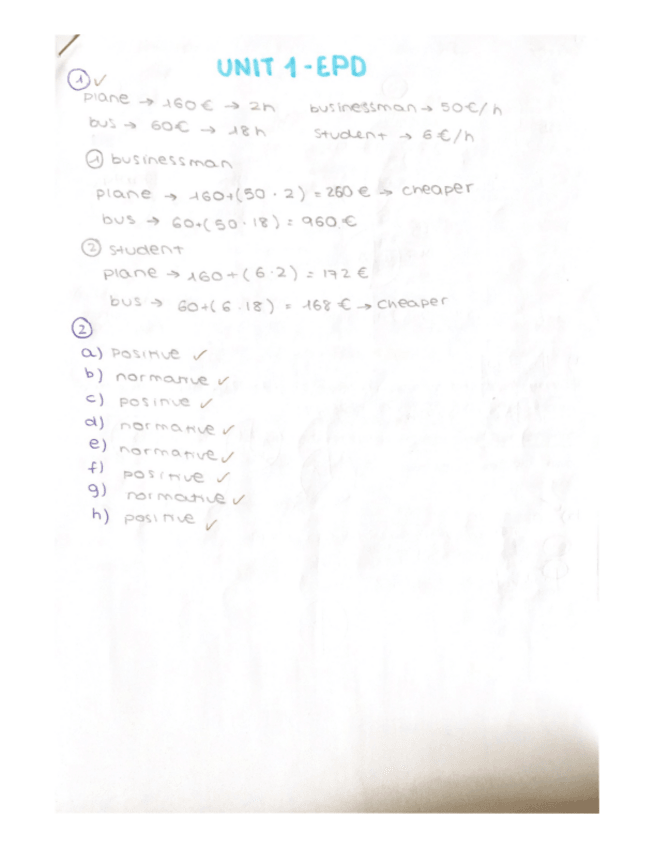 UNIT 1-EPD
① ✓
plane → 160€ → 2h businessman → 50€/h
bus → 60€ → 18h student → 6€/h
① businessman
plane → 160+(50·2) = 260€ → cheaper
bus → 60+(50·18) = 960€
② student
plane → 160+(6·2) = 172€
bus → 60+(6·18) = 168€ → cheaper
②
a) positive ✓
b) normative ✓
c) positive ✓
d) normative ✓
e) normative ✓
f) positive ✓
g) normative ✓
h) positive ✓